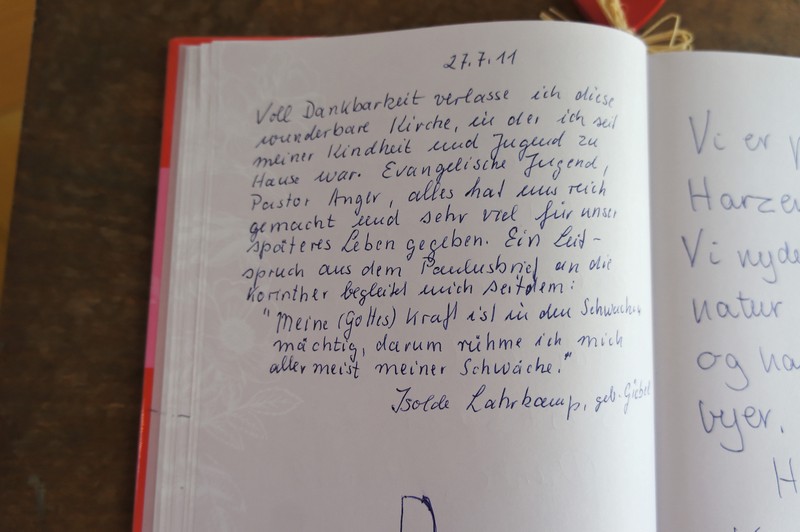 27.7.11
Voll Dankbarkeit verlasse ich diese
wunderbare Kirche, in der ich seit
meiner Kindheit und Jugend zu
Hause war. Evangelische Jugend,
Pastor Anger, alles hat uns reich
gemacht und sehr viel für unser
späteres Leben gegeben. Ein Leit-
spruch aus dem Paulusbrief an die
Korinther begleitet mich seitdem:
"Meine (Gottes) Kraft ist in den Schwachen
mächtig, darum rühme ich mich
allermeist meiner Schwäche."
Isolde Lahrkamp, geb. Giebel
D
Vi er
Harze
Vi nyde
natur
og na
byer.
H